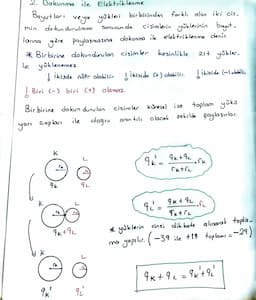 2. Dokunma ile Elektriklenme
Boyutları veya yükleri birbirinden farklı olan iki cis-
min dokundurulması sonucunda cisimlerin yüklerinin boyut-
larına göre paylaşmasına dokunma ile elektriklenme denir
* Birbirine dokundurulan cisimler kesinlikle zıt yükler-
le yüklenemez
↓ İkiside nötr olabilir. ↓ İkiside (+) olabilir. ↓ İkiside (-) olabilir.
↓ Biri (-) biri (+) olamaz.
Birbirine dokundurulan cisimler küresel ise toplam yükü
yarı çapları ile doğru orantılı olacak şekilde paylaşırlar.
K L
qK qL
qK' = qK+qL / rK+rL . rK
K L
qK+qL
qL' = qK+qL / rK+rL . rL
* yüklerin cinsi dikkate alınarak topla-
ma yapılır. (-39 ile +19 toplamı = -29)
K L
qK' qL'
qK + qL = qK' + qL'